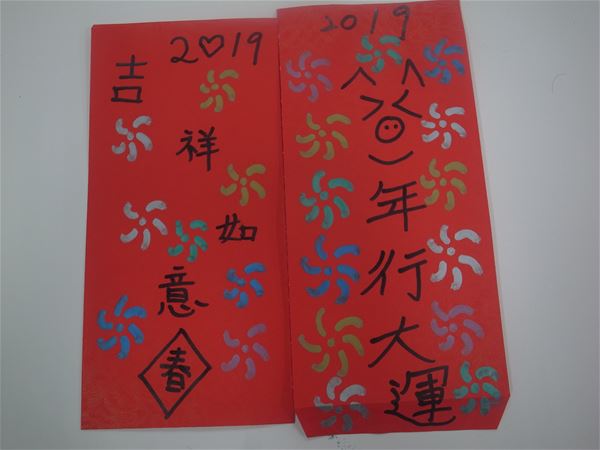 2♡19
吉祥如意
春
2019
年行大運